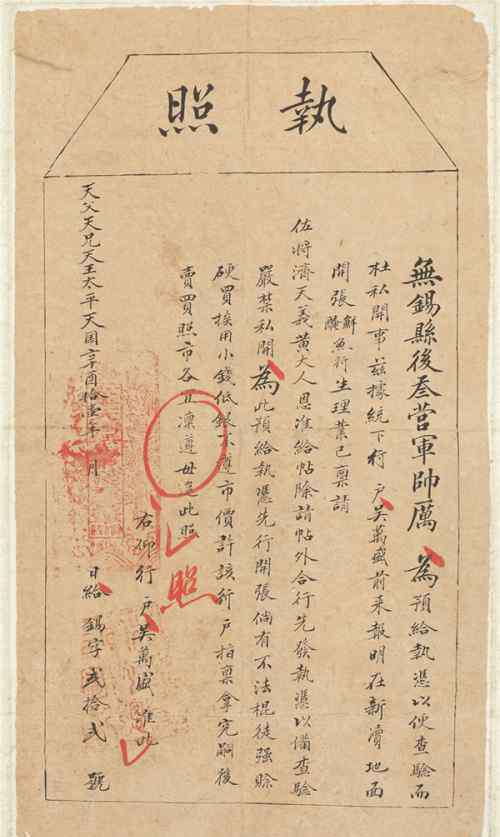 執照
無錫縣後叁营軍帥厲 為預給執憑以便查驗而
杜私開事茲據統下行户吳萬盛前来報明在新瀆地面
開張鮮醃魚行生理業已禀請
佐將濟天義黄大人恩准給帖除請帖外合行先發執憑以備查驗
嚴禁私開為此預給執憑先行開張倘有不法棍徒强賒
硬買換用小錢低銀不遵市價許該行户指禀拿究嗣後
賣買照市各宜凜遵毋違此照
照
右仰行户吳萬盛准此
天父天兄天王太平天囯辛酉拾壹年 月 日給 錫字弍拾弍號